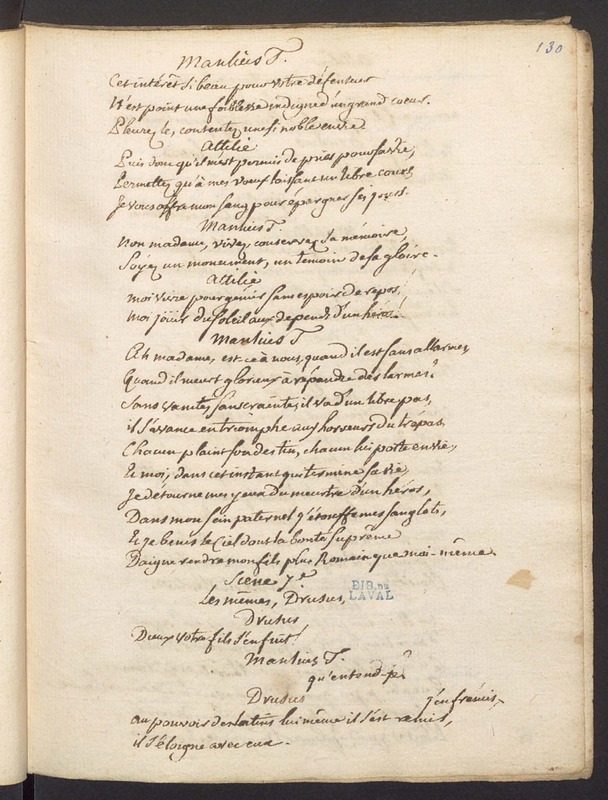 130
Manlius T.
Cet intérêt si beau pour votre défenseur
N'est point une foiblesse indigne d'un grand coeur.
Pleurez le, consentez, une si noble envie
Attilie
Puis donc qu'il m'est permis de prier pour sa vie,
Permettez qu'à mes voeux laissant un libre cours
Je vous offre mon sang pour épargner ses jours.
Manlius T.
Non madame, vivez, conservez sa mémoire
Soyez un monument, un temoin de sa gloire.
Attilie
moi vivre pour gémir sans espoir de repos,
moi joüir du soleil aux depends d'un héros!
Manlius T
Ah madame, est-ce à nous, quand il est sans allarmes,
Quand il meurt glorieux à répandre des larmes?
Sans vanité, sans crainte, il va d'un libre pas,
il s'avance en triomphe aux horreurs du trépas.
Chacun plaint son destin, chacun lui porte envie,
Et moi, dans cet instant qui termine sa vie
Je détourne mes yeux du meurtre d'un héros,
Dans mon sein paternel j'étouffe mes sanglots,
Et je benis le Ciel dont la bonté suprême
Daigne rendre mon fils plus Romain que moi-même.
Scene 7e
Les mêmes, Drusus,
BIB. DE
LAVAL
Drusus
Dieux votre fils s'enfuit!
Manlius T.
qu'entend-je?
Drusus
j'en frémis,
au pouvoir des latins lui même il s'est remis,
il s'éloigne avec eux.